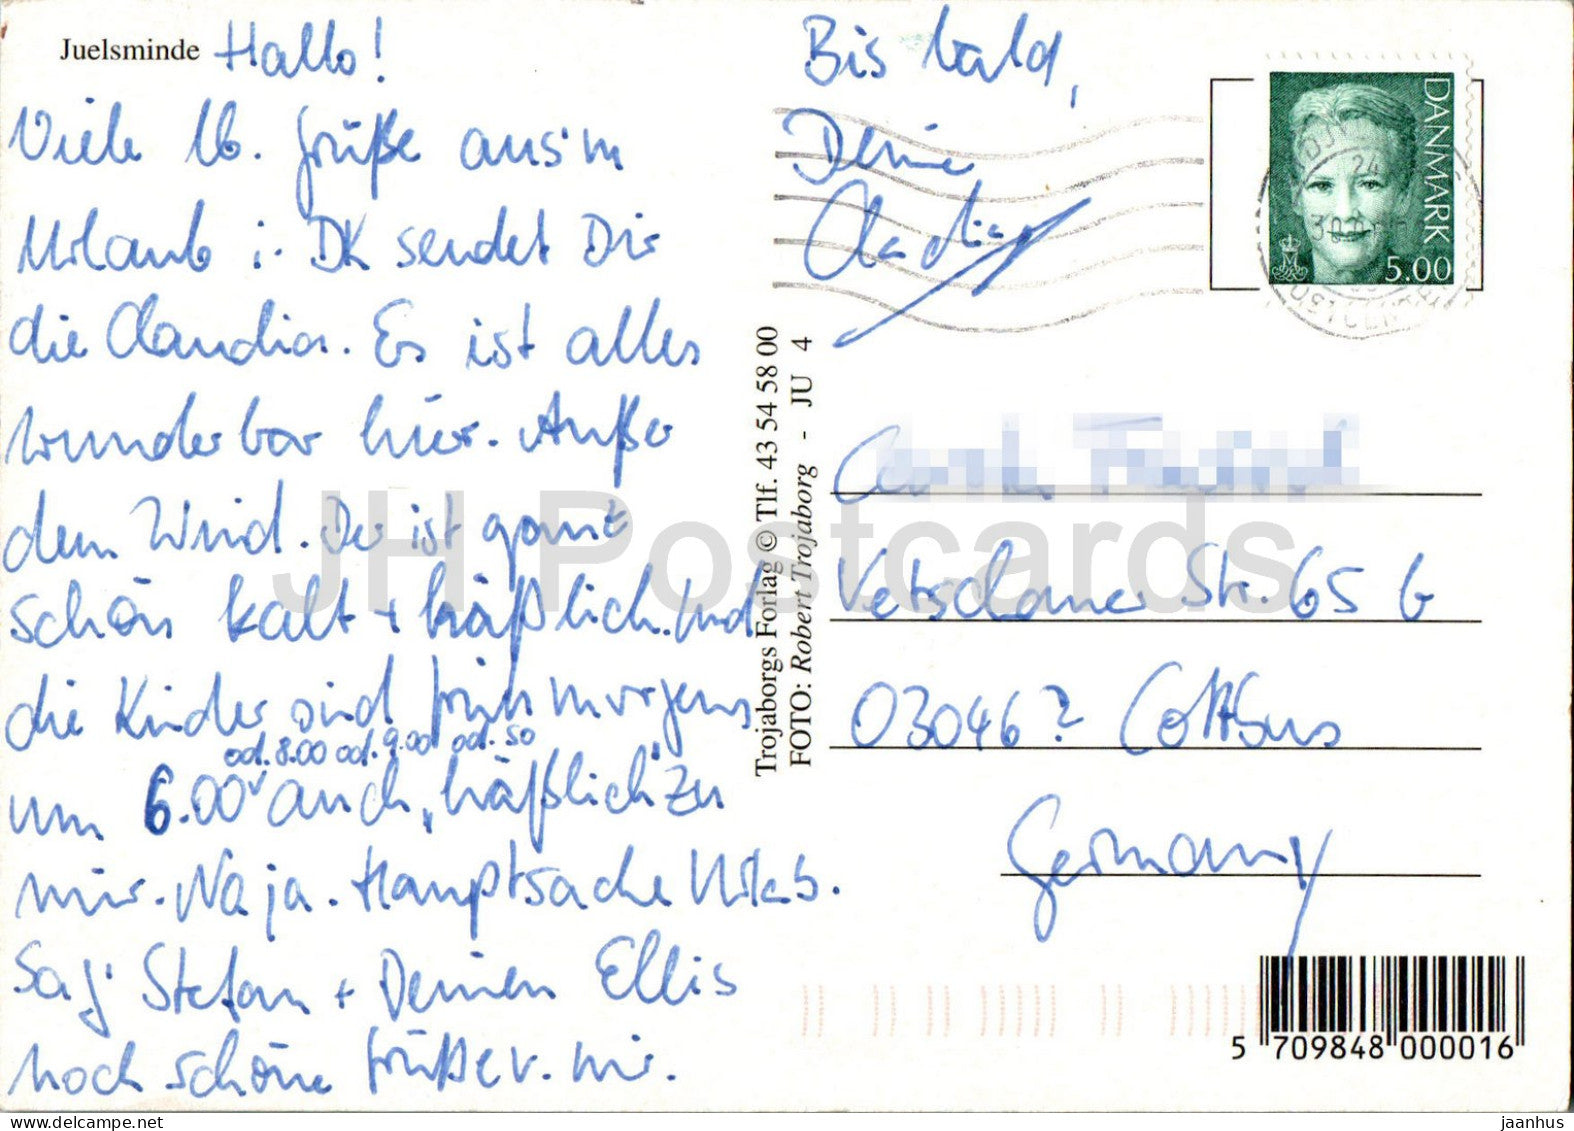 Juelsminde Hallo!
Viele lb. Grüße aus'm
Urlaub i. DK sendet Dir
die Claudia. Es ist alles
wunderbar hier. Außer
dem Wind. Der ist ganz
schön kalt + häßlich. Und
die Kinder sind früh morgens
od. 8.00 od. 9.00 od. so
um 6.00 auch „häßlich“ zu
mir. Na ja. Hauptsache Urlaub.
Sag' Stefan + Deinen Ellis
noch schöne Grüße v. mir.
Bis bald,
Deine
Claudia
DANMARK
5.00
Trojaborgs Forlag © Tlf. 43 54 58 00
FOTO: Robert Trojaborg - JU 4
Vetschauer Str. 65 b
03046? Cottbus
Germany
5 709848 000016
JH Postcards
jaanhus www.delcampe.net